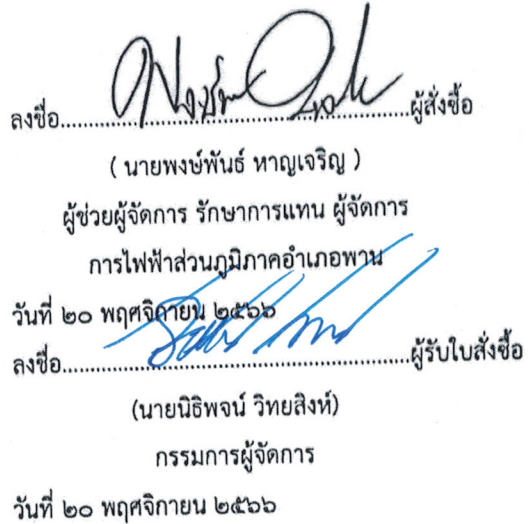 ลงชื่อ..........................................................ผู้สั่งซื้อ
( นายพงษ์พันธ์ หาญเจริญ )
ผู้ช่วยผู้จัดการ รักษาการแทน ผู้จัดการ
การไฟฟ้าส่วนภูมิภาคอำเภอพาน
วันที่ ๒๐ พฤศจิกายน ๒๕๖๖
ลงชื่อ..........................................................ผู้รับใบสั่งซื้อ
(นายนิธิพจน์ วิทยสิงห์)
กรรมการผู้จัดการ
วันที่ ๒๐ พฤศจิกายน ๒๕๖๖